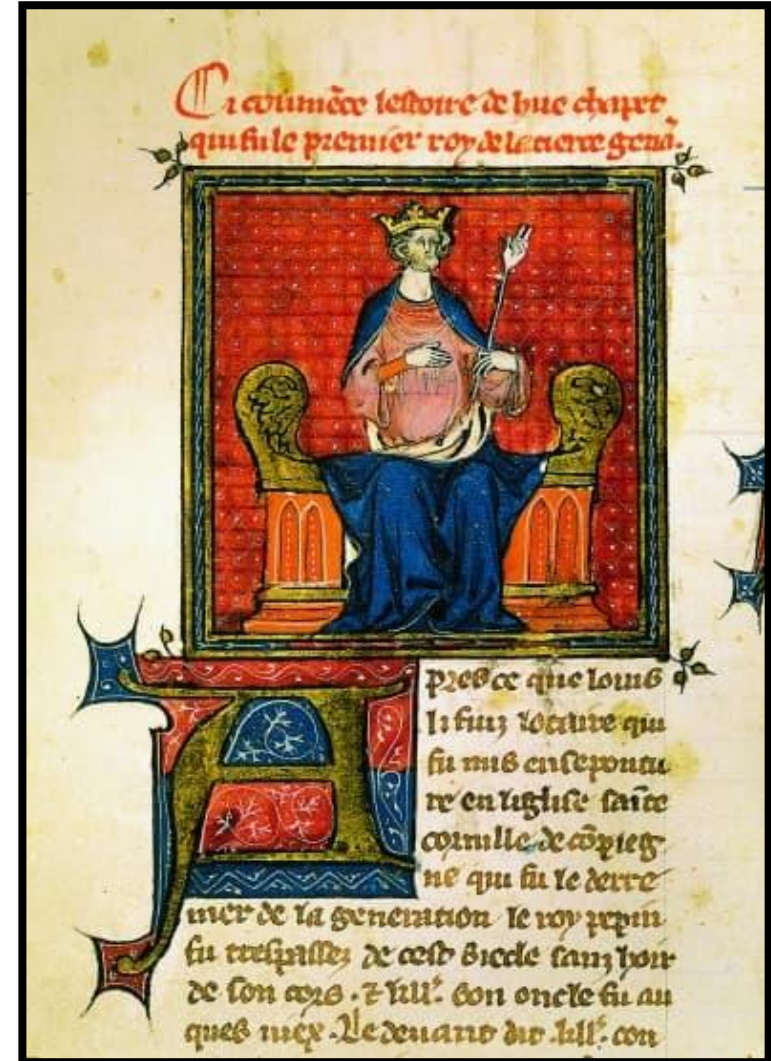 Ci coumēce lestoire de hue chapet
qui fu le premier roy de la tierce gena᷑.
Apres ce que louis
li fiuz lothaire qui
fu mis en sepoutu
re en leglise saīte
cornille de cōpieg
ne qui fu le derre
nier de la generation le roy pepin
fu trespassez de cest siecle sanz hoir
de son cors . ⁊ son oncle fu au
ques Le devant dit con